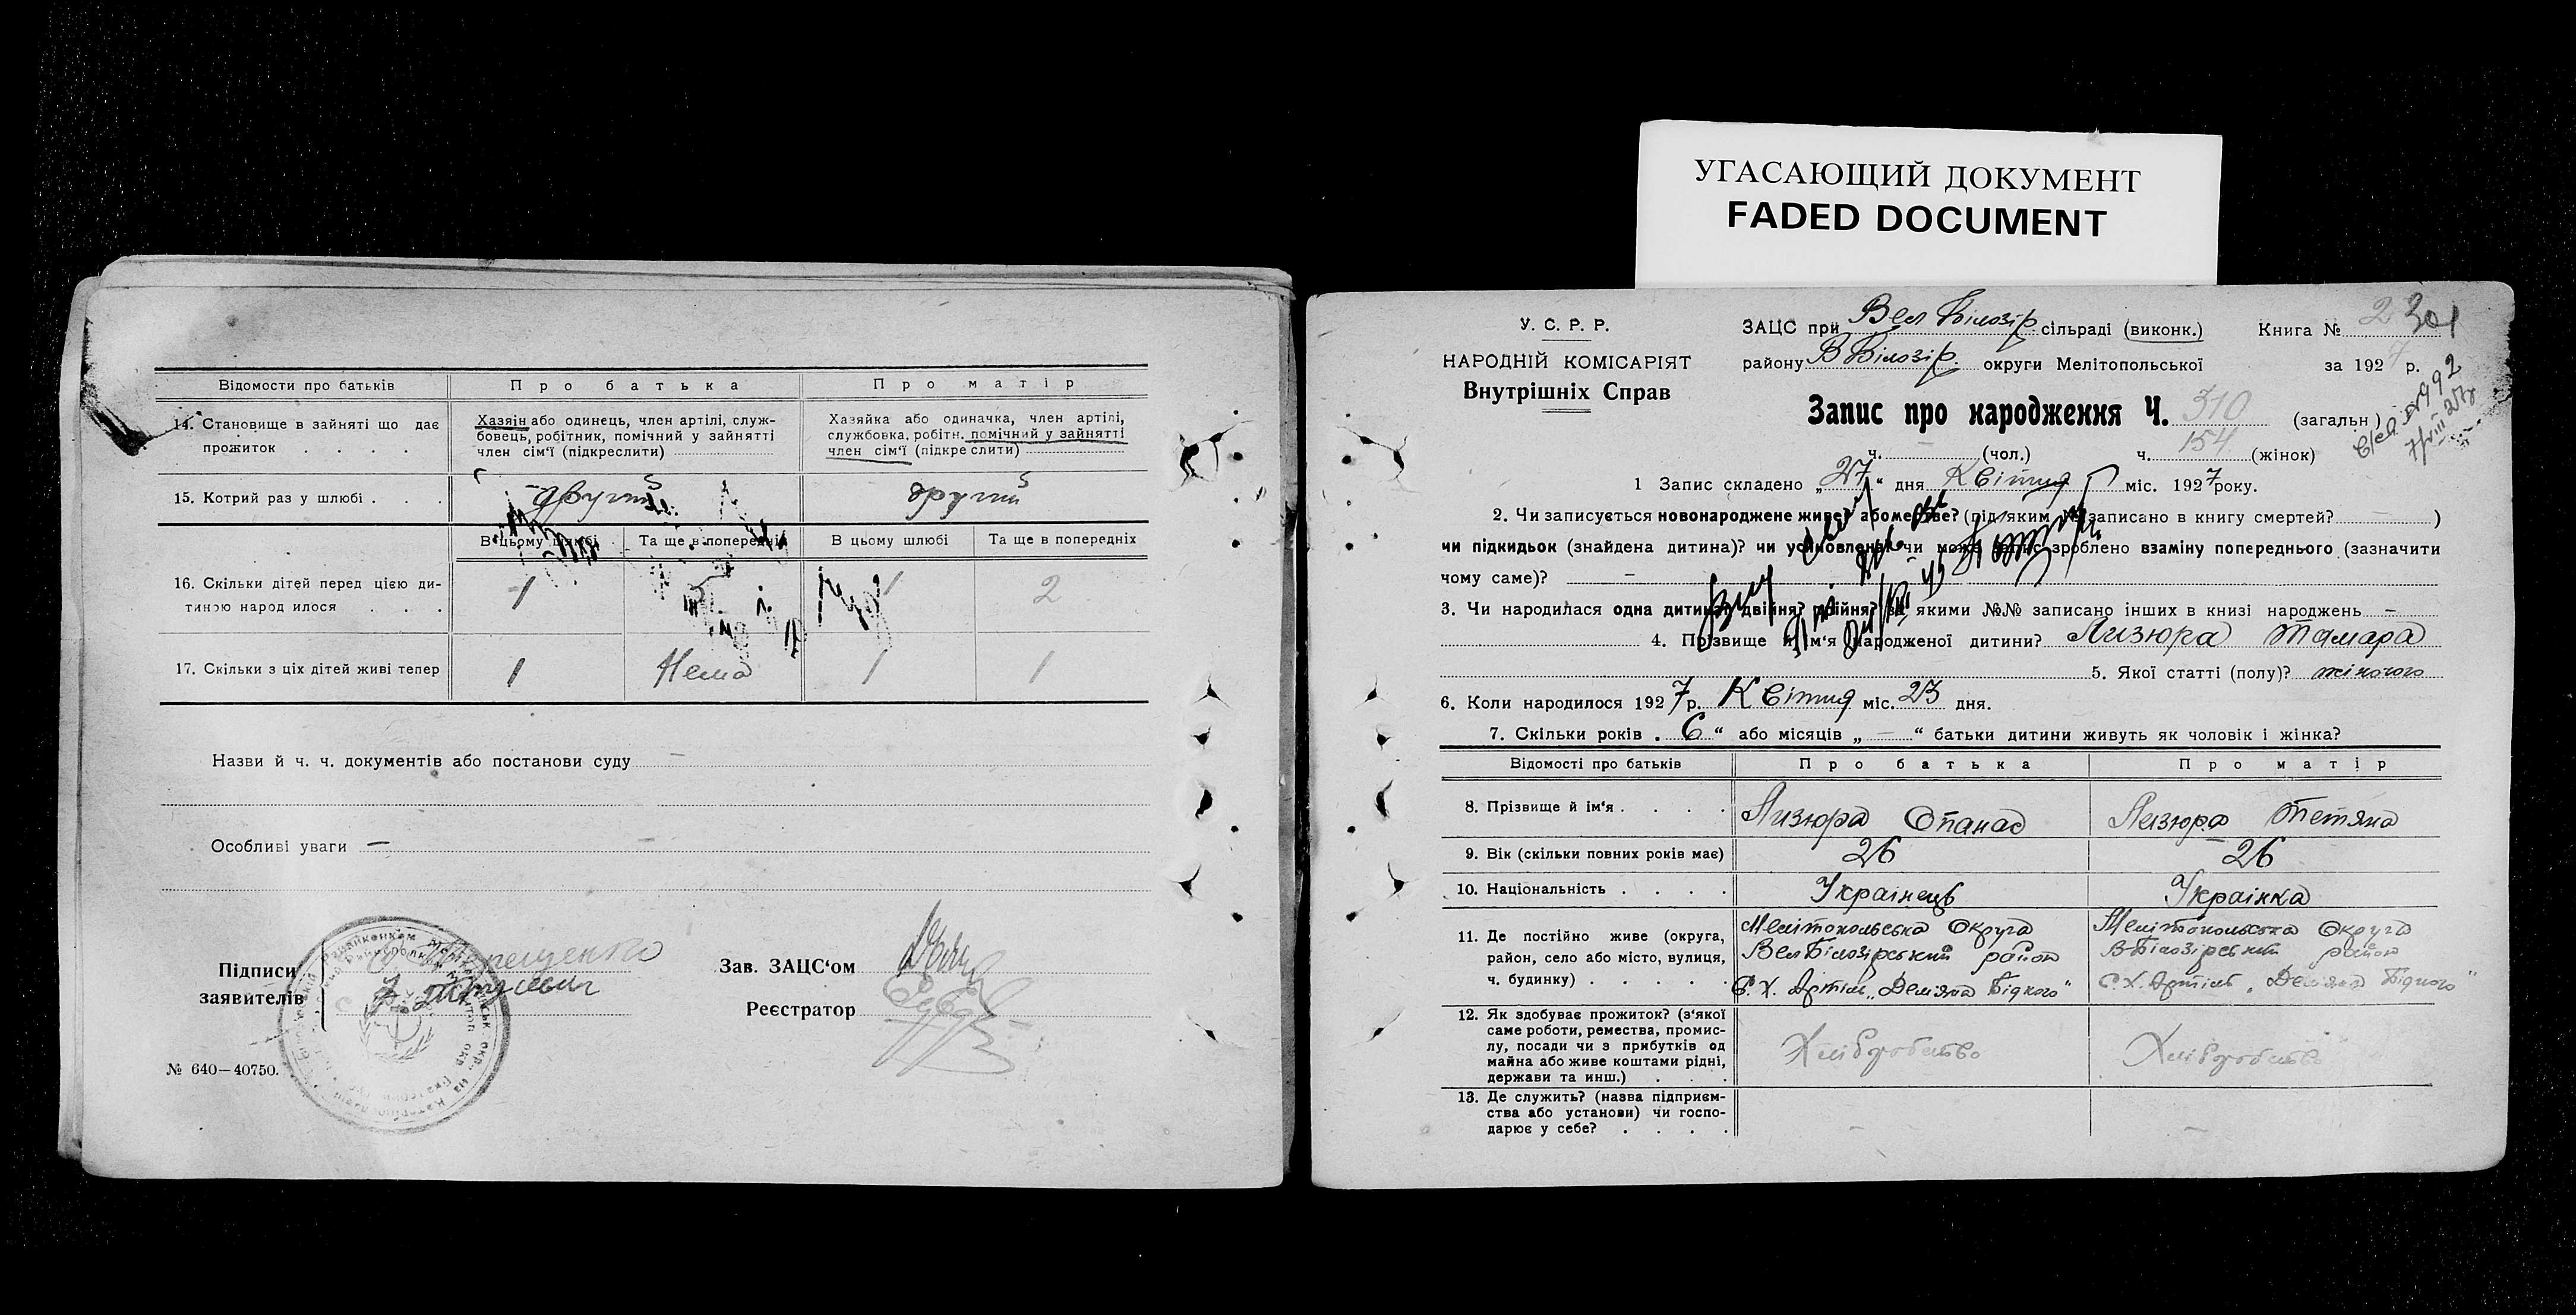 УГАСАЮЩИЙ ДОКУМЕНТ
FADED DOCUMENT
Відомости про батьків
Про батька
Про матір
14. Становище в зайняті що дає прожиток . . . .
Хазяін або одинець, член артілі, служ-
бовець, робітник, помічний у зайнятті
член сім'ї (підкреслити)
Хазяйка або одиначка, член артілі,
службовка, робітн. помічний у зайнятті
член сім'ї (підкреслити)
15. Котрий раз у шлюбі . . .
другий
другий
В цьому шлюбі
Та ще в попередніх
В цьому шлюбі
Та ще в попередніх
16. Скільки дітей перед цією ди-
тиною народилося . . .
1
1
2
17. Скільки з ціх дітей живі тепер
1
Нема
1
1
Назви й ч. ч. документів або постанови суду —
Особливі уваги —
Підписи
заявителів
Зав. ЗАЦС'ом
Реєстратор
№ 640—40750.
У. С. Р. Р.
НАРОДНІЙ КОМІСАРІЯТ
Внутрішніх Справ
ЗАЦС при Вел Білозір сільраді (виконк.)
Книга № 2 301
району В Білозір. округи Мелітопольської
за 1927 р.
Запис про народження Ч. 310 (загальн)
ч. — (чол.) ч. 154 (жінок)
1 Запис складено „27" дня Квітня міс. 1927 року.
2. Чи записується новонароджене живе? або мертве? (під яким № записано в книгу смертей? — )
чи підкидьок (знайдена дитина)? чи усиновлена? чи може запис зроблено взаміну попереднього (зазначити
чому саме)? —
3. Чи народилася одна дитина? двійня? трійня? за якими №№ записано інших в книзі народжень —
4. Прізвище й ім'я народженої дитини? Лизюра Тамара
5. Якої статті (полу)? жіночого
6. Коли народилося 1927 р. Квітня міс. 23 дня.
7. Скільки років „6" або місяців „—" батьки дитини живуть як чоловік і жінка?
Відомості про батьків
Про батька
Про матір
8. Прізвище й ім'я . . . .
Лизюра Опанас
Лизюра Тетяна
9. Вік (скільки повних років має)
26
26
10. Національність . . . .
Українець
Українка
11. Де постійно живе (округа,
район, село або місто, вулиця,
ч. будинку) . . . . .
Мелітопольська Округа
Вел Білозірський район
С.Х. Артіль „Демяна Бідного"
Мелітопольська Округа
В-Білозірський район
С.Х. Артіль „Демяна Бідного"
12. Як здобуває прожиток? (з'якої
саме роботи, ремества, промис-
лу, посади чи з прибутків од
майна або живе коштами рідні,
держави та инш.) . . .
Хліборобство
Хліборобство
13. Де служить? (назва підприєм-
ства або установи) чи госпо-
дарює у себе? . . . .
—
—